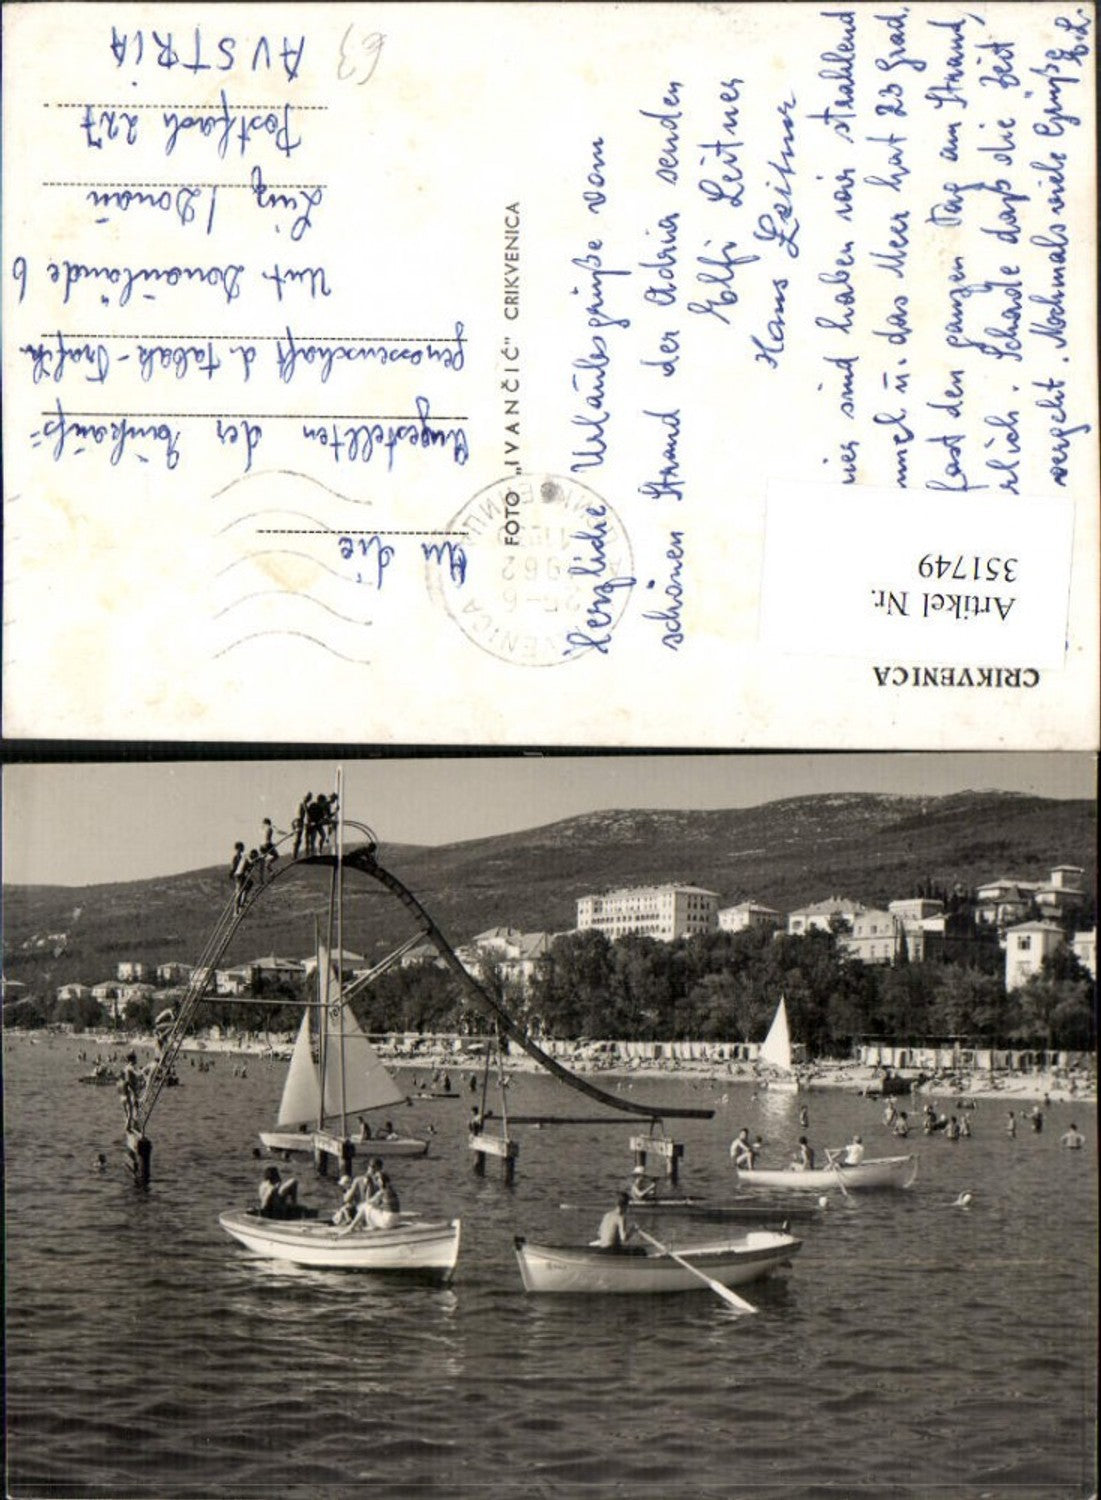 CRIKVENICA
Artikel Nr.
351749
Herzliche Urlaubsgrüße vom
schönen Strand der Adria senden
Elfi Leitner
Hans Leitner
sind haben wir strahlend
u. das Meer hat 23 Grad.
fast den ganzen Tag am Strand,
rlich. Schade daß die Zeit
vergeht. Nochmals viele Grüße E.L.
FOTO „IVANČIĆ" CRIKVENICA
CRIKVENICA
25-6
1962
An die
Angestellten der Einkaufs-
genossenschaft d. Tabak-Trafik.
Unt. Donaulände 6
Linz / Donau
Postfach 227
AUSTRIA
63